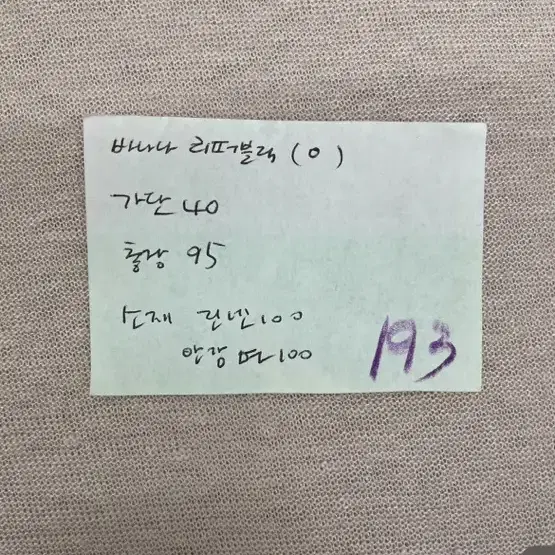 바나나 리퍼블릭 (0)
가단 40
총장 95
소재 린넨 100
안감 면 100
193